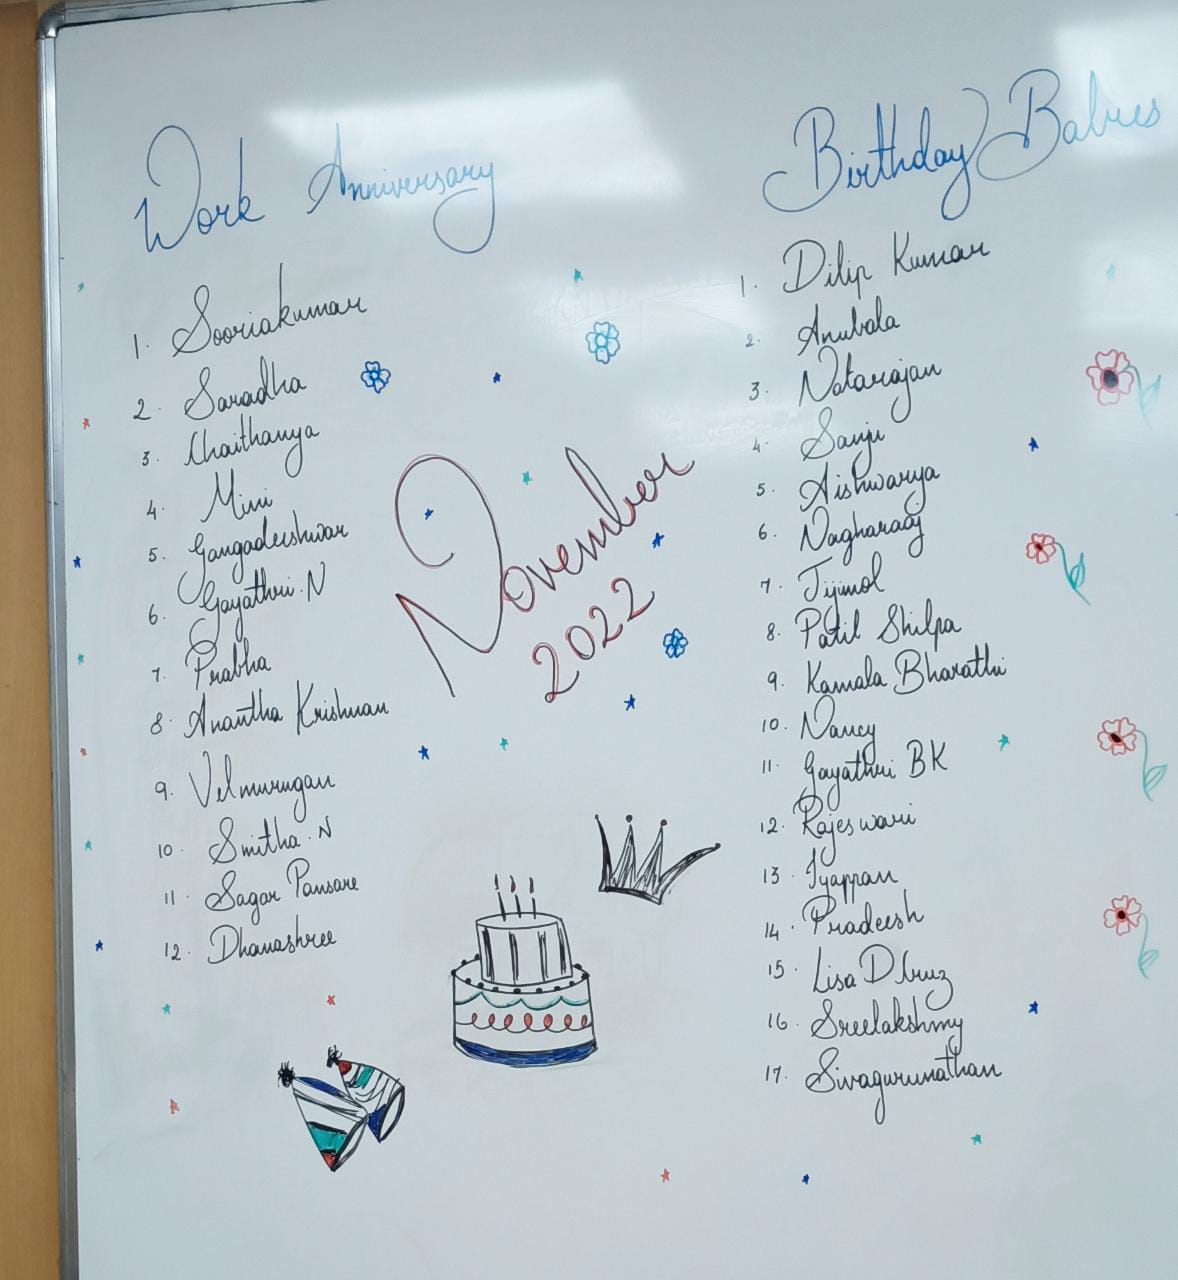 Work Anniversary
1. Sooriakumar
2. Saradha
3. Chaithanya
4. Mini
5. Gangadeeshwar
6. Gayathri.N
7. Prabha
8. Anantha Krishnan
9. Velmurugan
10. Smitha.N
11. Sagar Pansare
12. Dhanashree
November
2022
Birthday Babies
1. Dilip Kumar
2. Anubala
3. Natarajan
4. Sanju
5. Aishwarya
6. Nagharaaj
7. Tijimol
8. Patil Shilpa
9. Kamala Bharathi
10. Nancy
11. Gayathri BK
12. Rajeswari
13. Iyappan
14. Pradeesh
15. Lisa D Cruz
16. Sreelakshmy
17. Sivagurunathan